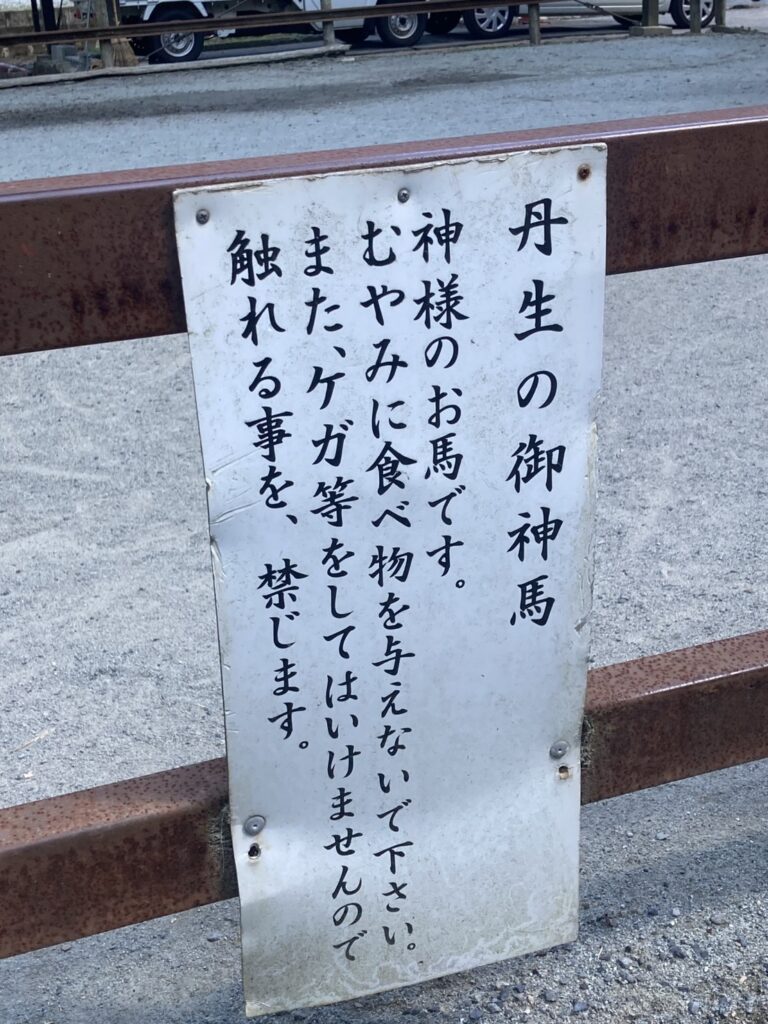 丹生の御神馬
神様のお馬です。
むやみに食べ物を与えないで下さい。
また、ケガ等をしてはいけませんので
触れる事を、禁じます。